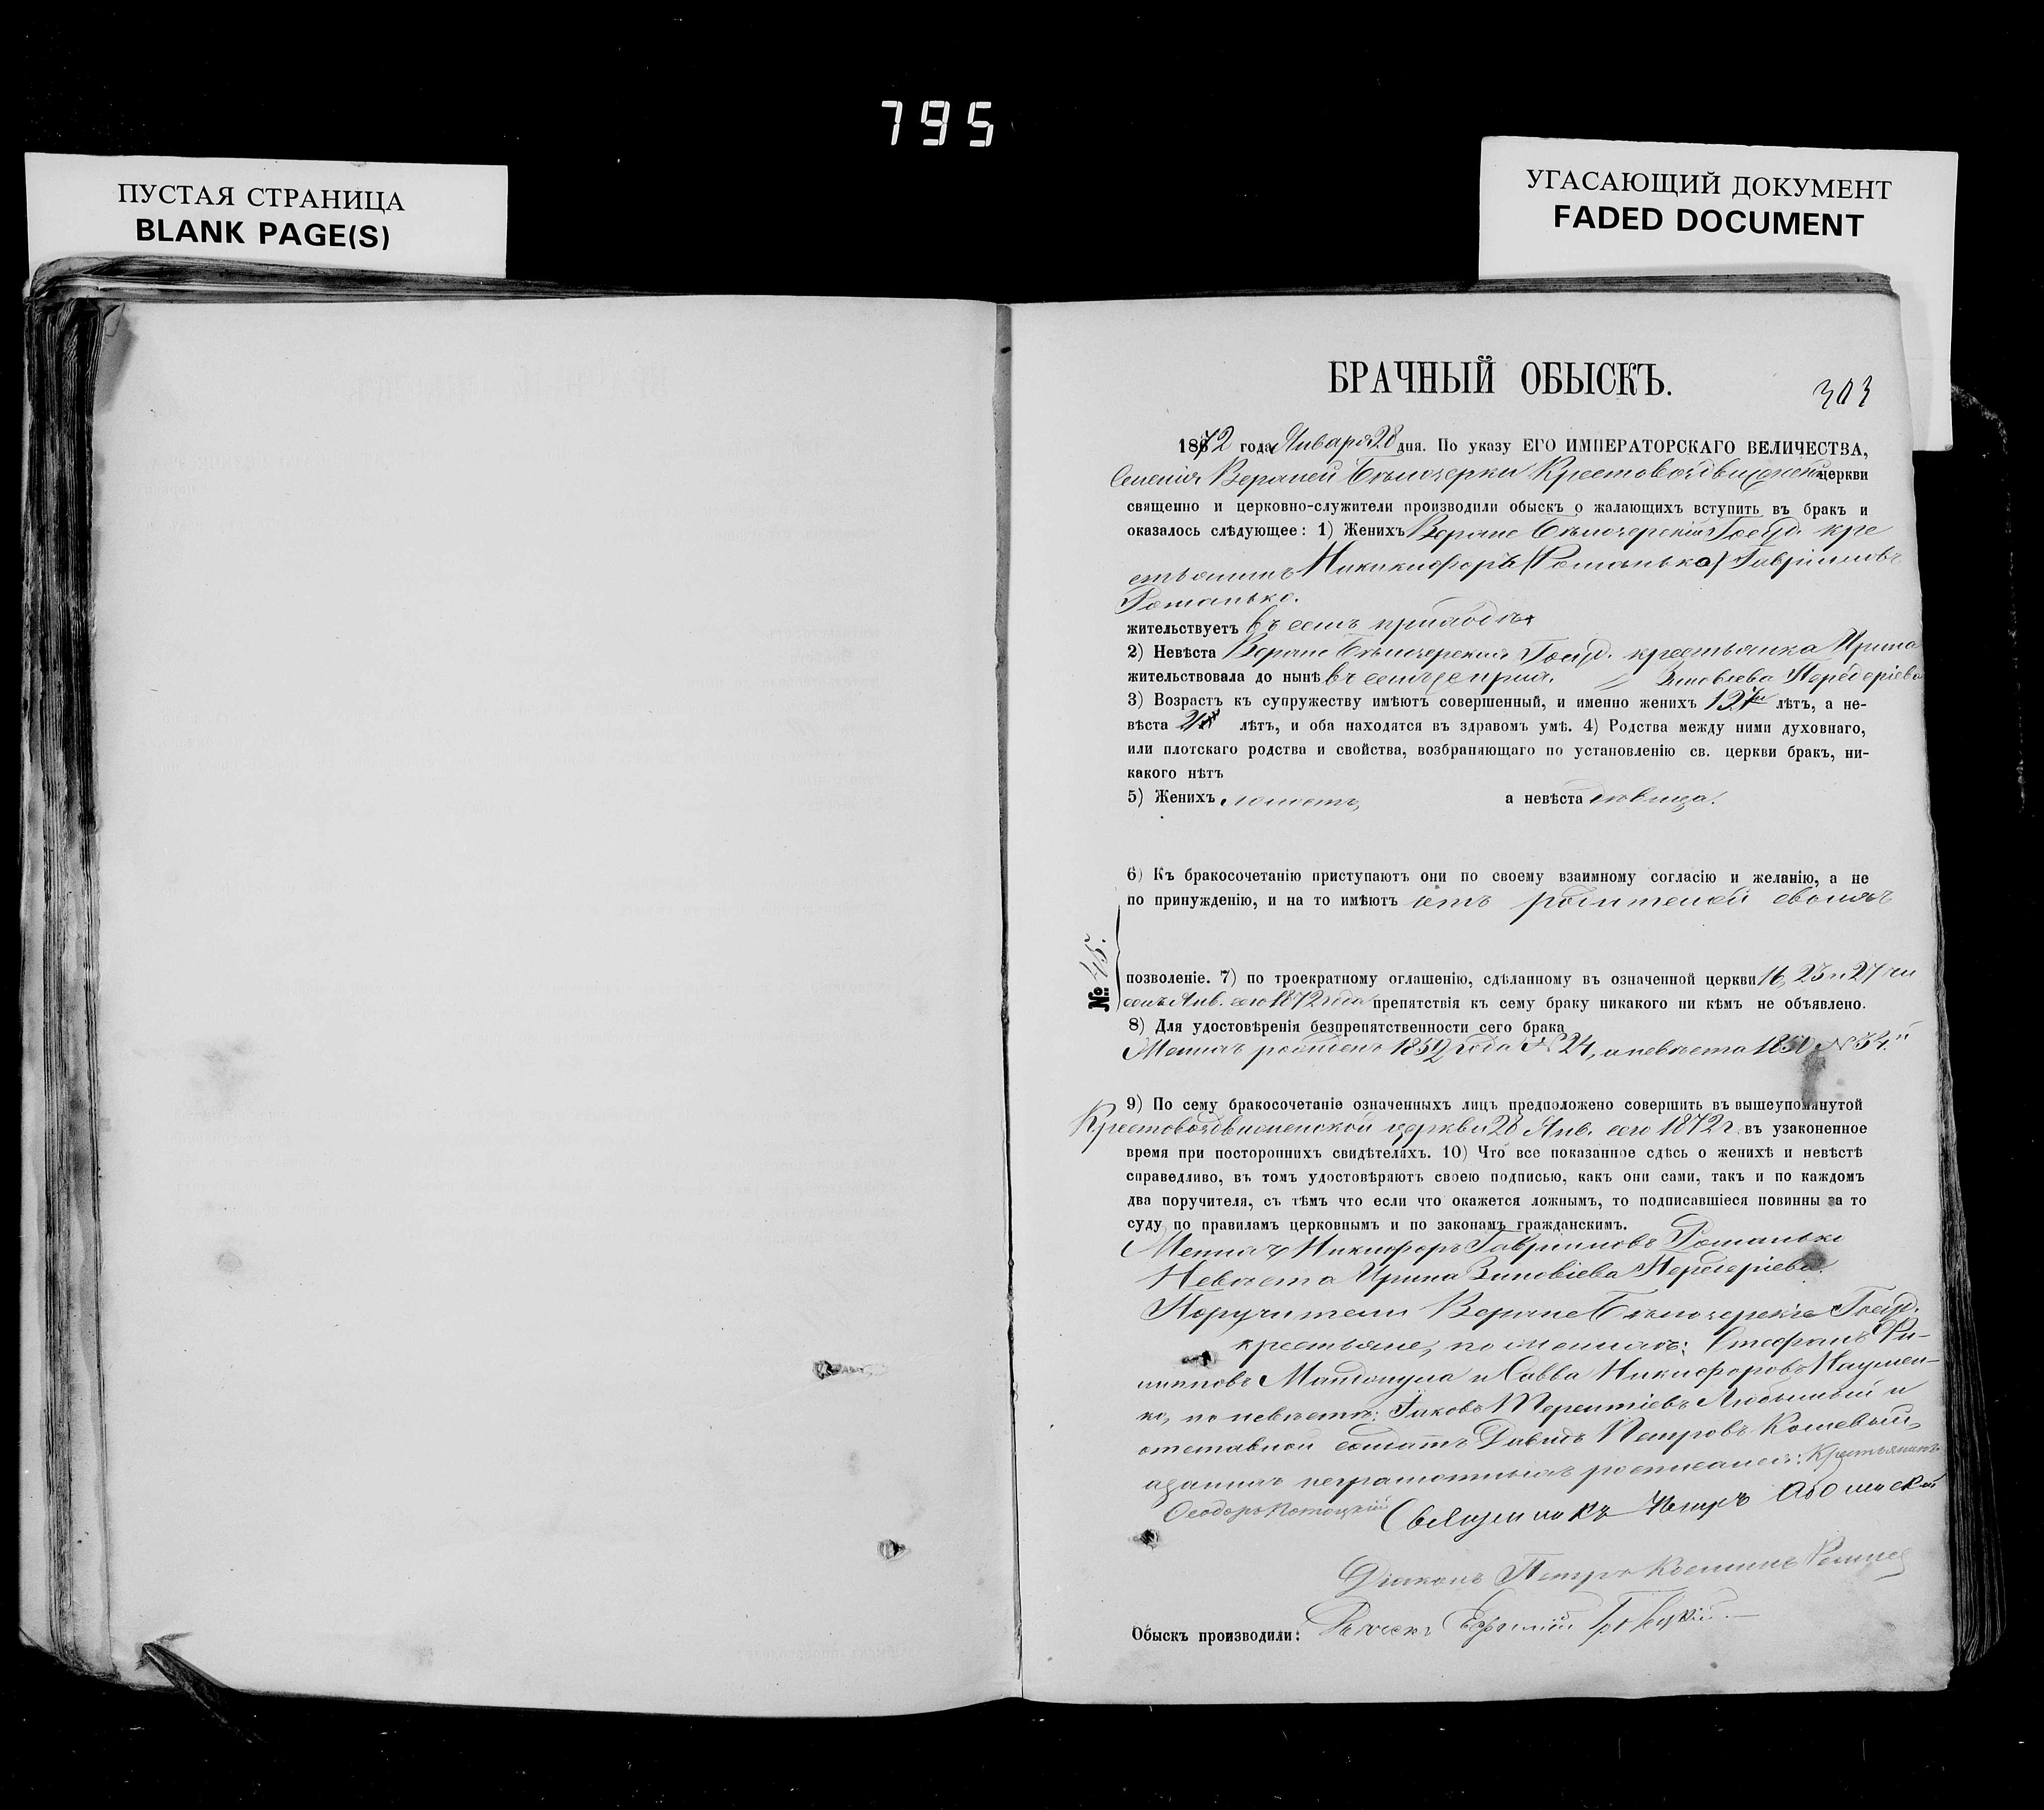 795
ПУСТАЯ СТРАНИЦА
BLANK PAGE(S)
УГАСАЮЩИЙ ДОКУМЕНТ
FADED DOCUMENT
БРАЧНЫЙ ОБЫСКЪ.
303
1872 года Января 28 дня. По указу ЕГО ИМПЕРАТОРСКАГО ВЕЛИЧЕСТВА,
Селенія Верхней Бѣлозерки Крестовоздвиженской церкви
священно и церковно-служители производили обыскъ о жалающихъ вступить въ бракъ и
оказалось слѣдующее: 1) Женихъ Верхне Бѣлозерскій Госуд. кре
стьянинъ Никикифоръ (Романько) Гавріиловъ
Романько.
жительствуетъ въ семъ приходѣ
2) Невѣста Верхне Бѣлозерская Госуд. крестьянка Ирина
жительствовала до нынѣ въ семъ же прих. Зиновіева Передеріева
3) Возрастъ къ супружеству имѣютъ совершенный, и именно женихъ лѣтъ, а не-
вѣста лѣтъ, и оба находятся въ здравомъ умѣ. 4) Родства между ними духовнаго,
или плотскаго родства и свойства, возбраняющаго по установленію св. церкви бракъ, ни-
какого нѣтъ
5) Женихъ холостъ, а невѣста дѣвица.
6) Къ бракосочетанію приступаютъ они по своему взаимному согласію и желанію, а не
по принужденію, и на то имѣютъ отъ родителей своихъ
№ 45.
позволеніе. 7) по троекратному оглашенію, сдѣланному въ означенной церкви 16, 23 и 27 чи
селъ Янв. сего 1872 года препятствія къ сему браку никакого ни кѣмъ не объявлено.
8) Для удостовѣренія безпрепятственности сего брака
Женихъ рожденъ 1852 года № 24, а невѣста 1850 № 54.й
9) По сему бракосочетаніе означенныхъ лицъ предположено совершить въ вышеупомянутой
Крестовоздвиженской церкви 28 Янв. сего 1872 г. въ узаконенное
время при постороннихъ свидѣтеляхъ. 10) Что все показанное сдѣсь о женихѣ и невѣстѣ
справедливо, въ томъ удостовѣряютъ своею подписью, какъ они сами, такъ и по каждомъ
два поручителя, съ тѣмъ что если что окажется ложнымъ, то подписавшіеся повинны за то
суду по правиламъ церковнымъ и по законамъ гражданскимъ.
Женихъ Никифоръ Гавріиловъ Романько
Невѣста Ирина Зиновіева Передеріева.
Поручители Верхне Бѣлозерскіе Госуд.
крестьяне, по женихѣ: Стефанъ Фи-
липповъ и Савва Никифоровъ Наумен-
ко, по невѣстѣ: Іяковъ Терентіевъ Любимый и
отставной солдатъ Давидъ Петровъ Кошевый,
а за нихъ неграмотныхъ росписался: Крестьянинъ
Ѳеодоръ Потоцкій Священникъ Петръ
Діаконъ Петръ
Обыскъ производили: Ефимій